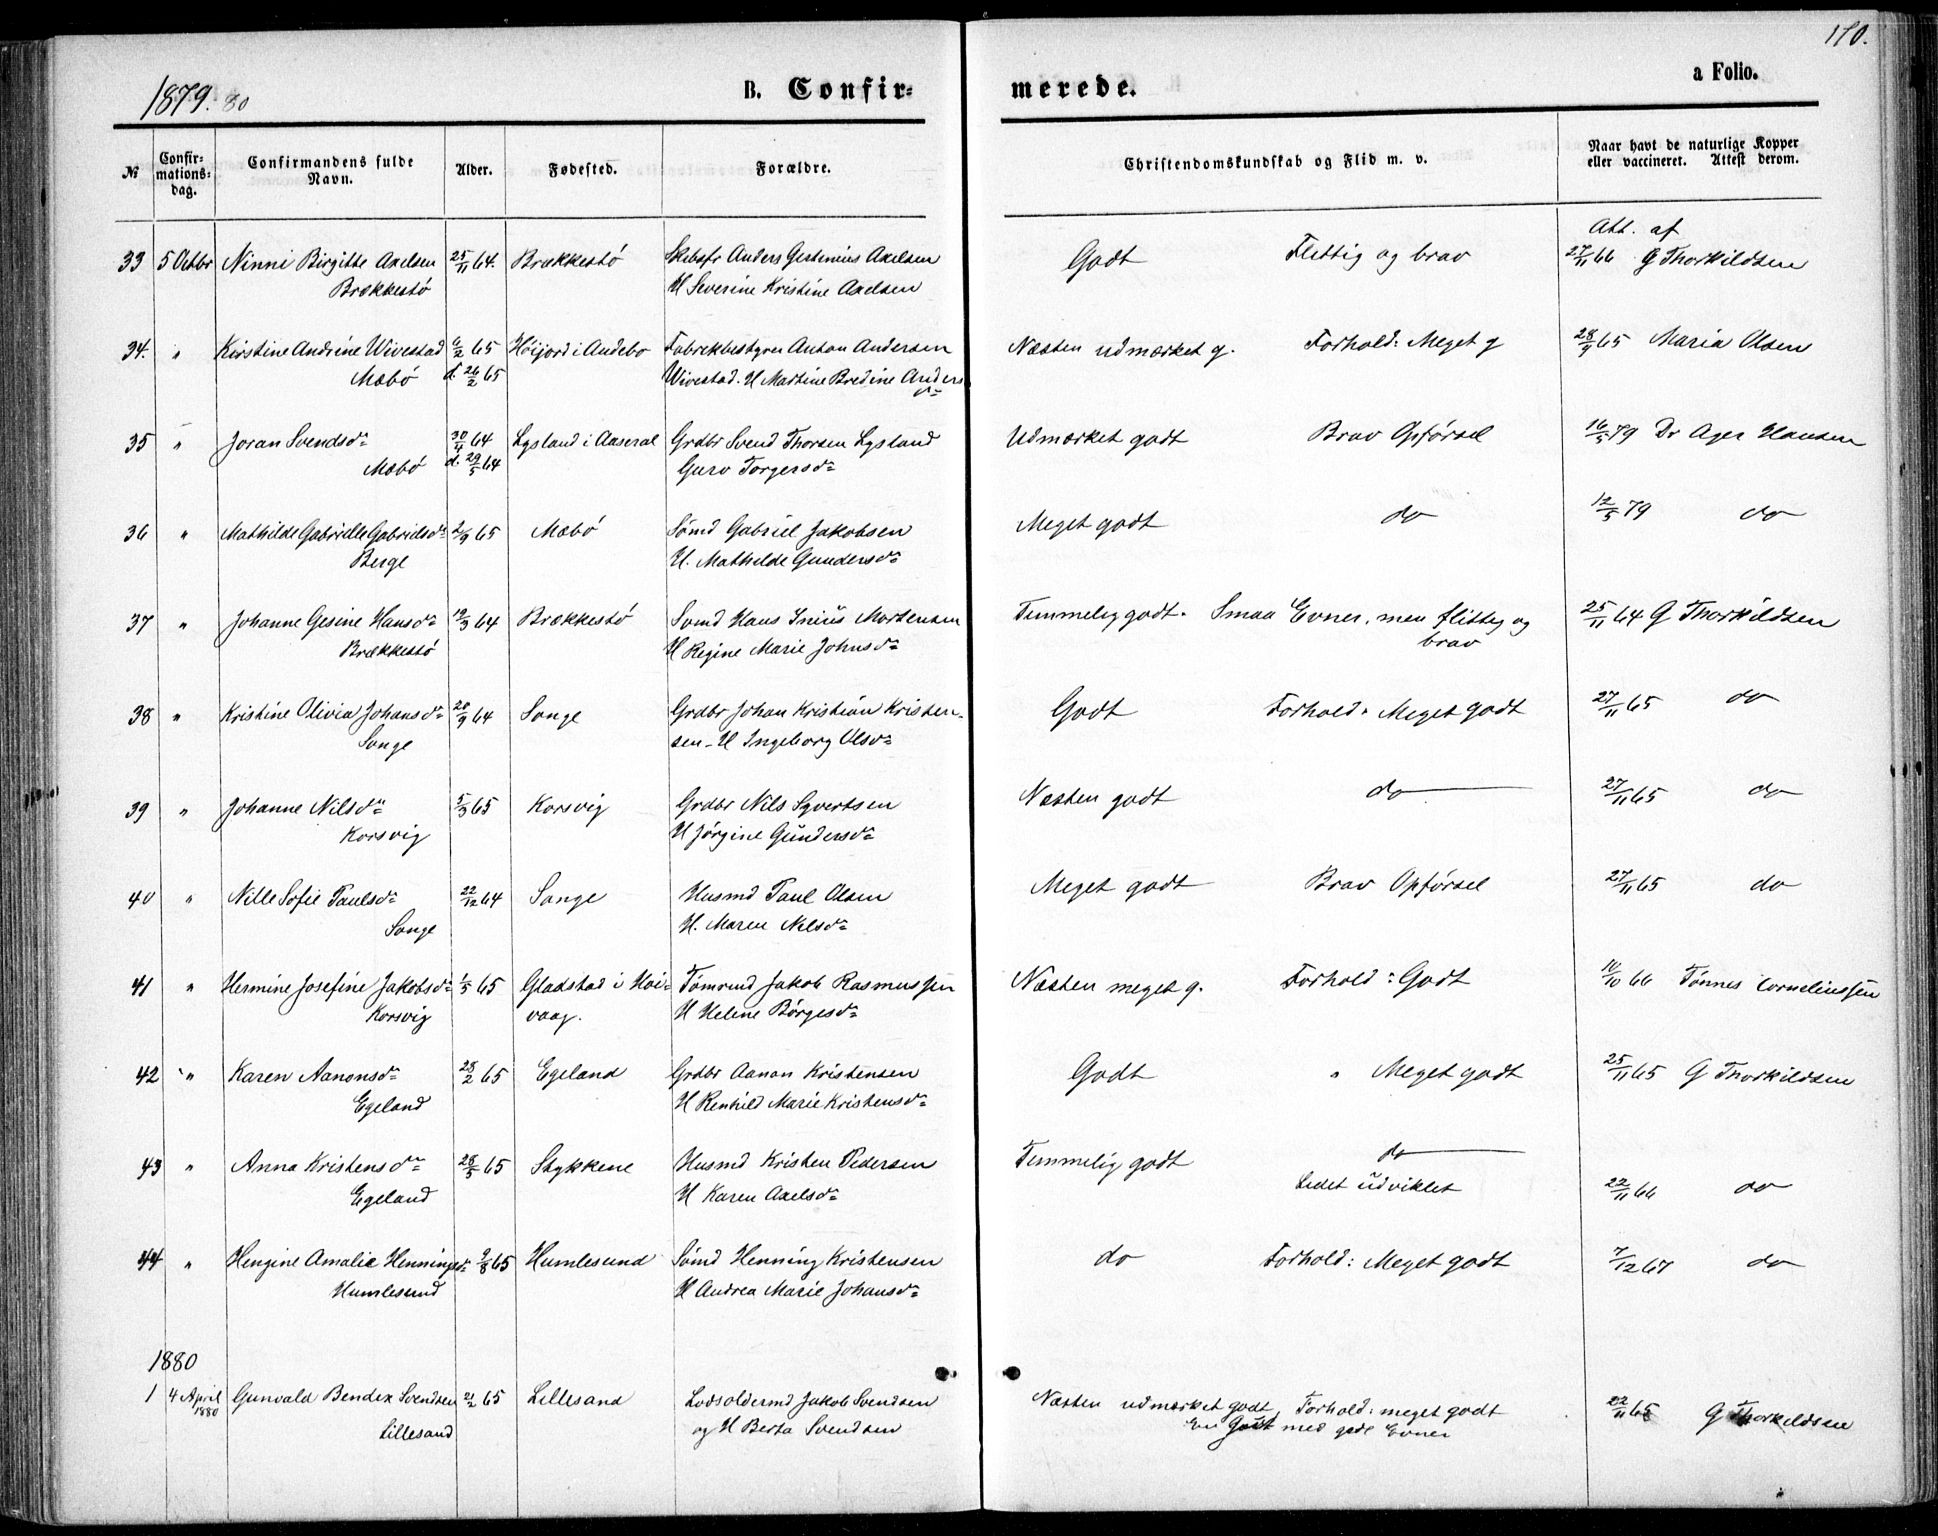 170.
1879. 80
B. Confir=
merede.
a Folio.
№
Confir=
mations=
dag.
Confirmandens fulde
Navn.
Alder.
Fødested.
Forældre.
Christendomskundskab og Flid m. v.
Naar havt de naturlige Kopper
eller vaccineret. Attest derom.
33 5 Octbr Ninni Birgitte Axelsen 25/11 64. Brækkestø Skibsfr Anders Gertinius Axelsen Godt Flittig og brav Att. af 27/11 66 G Thorkildsen
Brækkestø H Severine Kristine Axelsen
34. " Kirstine Andrine Wivestad 6/2 65 Høijord i Andebo Fabrikbestyrer Anton Andersen Næsten udmærket g. Forhold: Meget g 28/9 65 Maria Olsen
Mæbø d. 26/2 65 Wivestad. H Martine Bredine Anders
dr
35 " Joran Svendsdr 30/4 64 Lysland i Aaseral Grdbr Svend Thorsen Lysland Udmærket godt Brav Opførsel 16/5 79 Dr Ager Hansen
Mæbø d. 29/5 64 Guro Torgersdr
36 " Mathilde Gabrielle Gabrielsdr 2/9 65 Mæbø Sømd Gabriel Jakobsen Meget godt do 12/5 79 do
Berge H. Mathilde Gundersdr
37 " Johanne Gesine Hansdr 19/3 64 Brækkestø Sømd Hans Inius Mortensen Temmelig godt. Smaa Evner, men flittig og 25/11 64 G Thorkildsen
Brækkestø H Regine Marie Johnsdr brav
38 " Kristine Olivia Johansdr 20/9 64 Songe Grdbr Johan Kristian Kristen- Godt Forhold: Meget godt 27/11 65 do
Songe sen - H Ingeborg Olsdr
39 " Johanne Nilsdr 5/3 65 Korsvig Grdbr Nils Syvertsen Næsten godt do 27/11 65 do
Korsvig H Jørgine Gundersdr
40 " Nille Sofie Taulsdr 22/12 64 Songe Husmd Taul Olsen Meget godt Brav Opførsel 27/11 65 do
Songe H. Maren Nilsdr
41 " Hermine Josefine Jakobsdr 1/5 65 Gladstad i Høi- Tømmd Jakob Rasmussen Næsten meget g. Forhold: Godt 10/10 66 Tønnes Corneliussen
Korsvig vaag. H Helene Børgesdr
42 " Karen Aanonsdr 28/2 65 Egeland Grdbr Aanon Kristensen Godt " Meget godt 25/11 65 G Thorkildsen
Egeland H Renhild Marie Kristensdr
43 " Anna Kristensdr 28/5 65 Stykkene Husmd Kristen Pedersen Temmelig godt do
Egeland H Karen Axelsdr Lidet udviklet 22/11 66 do
44 " Hengine Amalie Henningsdr 9/8 65 Humlesund Sømd Henning Kristensen do Forhold: Meget godt 7/12 67 do
Humlesund H Andrea Marie Johansdr
1880
1 4 April Gunvald Bendix Svendsen 2/2 65 Lillesand Lodsoldermd Jakob Svendsen Næsten udmærket godt, Forhold: meget godt 22/11 65 G Thorkildsen
1880 Lillesand og H Berta Svendsen En Gut med gode Evner